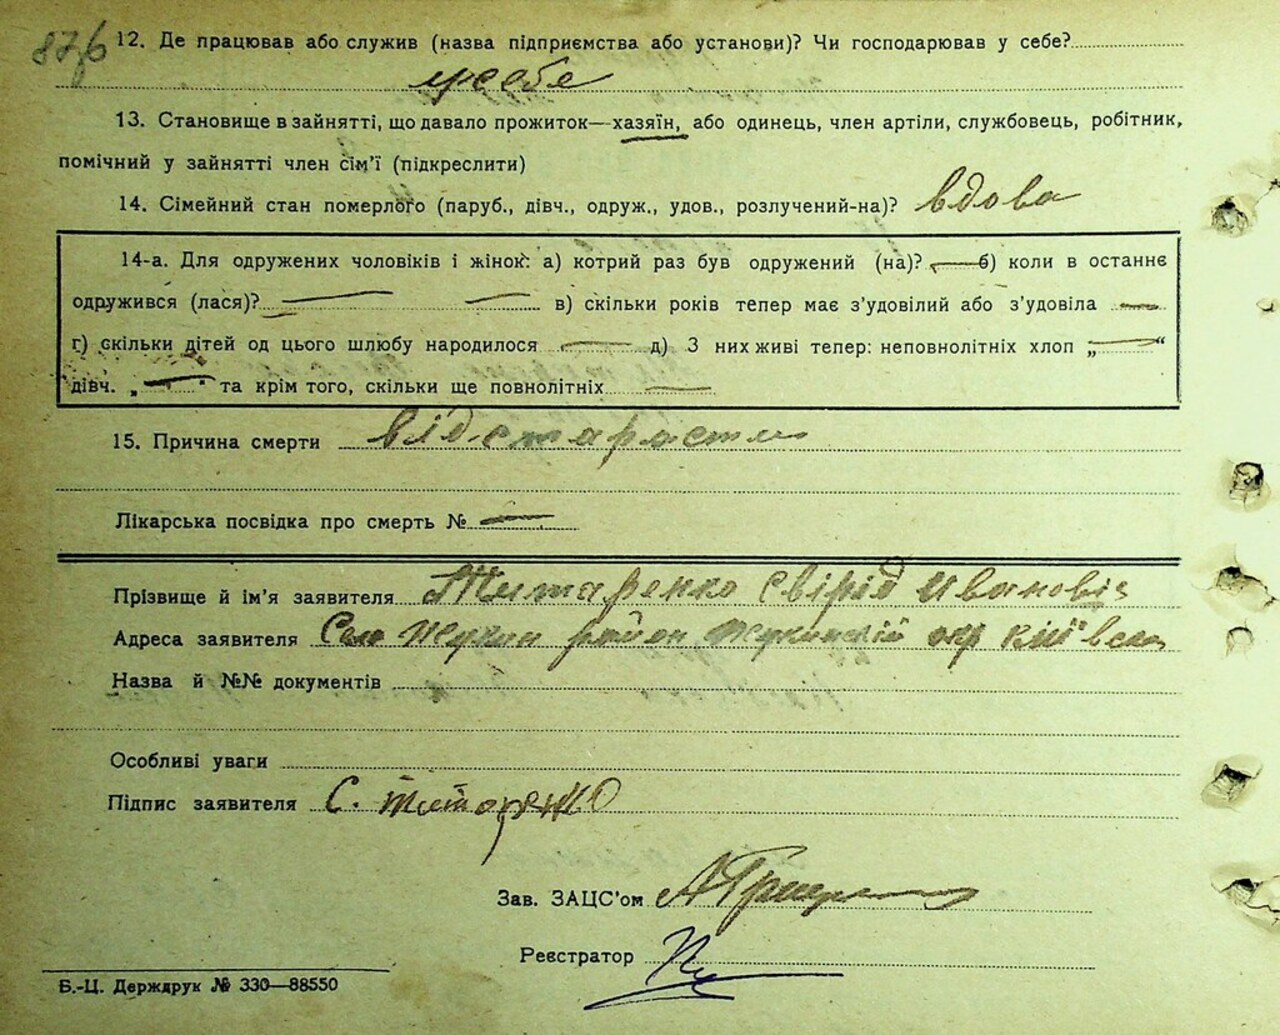 87б
12. Де працював або служив (назва підприємства або установи)? Чи господарював у себе?
у себе
13. Становище в зайнятті, що давало прожиток—хазяїн, або одинець, член артіли, службовець, робітник,
помічний у зайнятті член сім'ї (підкреслити)
14. Сімейний стан померлого (паруб., дівч., одруж., удов., розлучений-на)? вдова
14-а. Для одружених чоловіків і жінок: а) котрий раз був одружений (на)? — б) коли в останнє
одружився (лася)? — — в) скільки років тепер має з'удовілий або з'удовіла —
г) скільки дітей од цього шлюбу народилося — д) З них живі тепер: неповнолітніх хлоп „—“
дівч. „—“ та крім того, скільки ще повнолітніх —
15. Причина смерти від старости
Лікарська посвідка про смерть № —
Прізвище й ім'я заявителя Титаренко Свірід Иванович
Адреса заявителя Село Жукин район Жукинский окр Київська
Назва й №№ документів
Особливі уваги
Підпис заявителя С. Титоренко
Зав. ЗАЦС'ом
Реєстратор
Б.-Ц. Держдрук № 330—88550